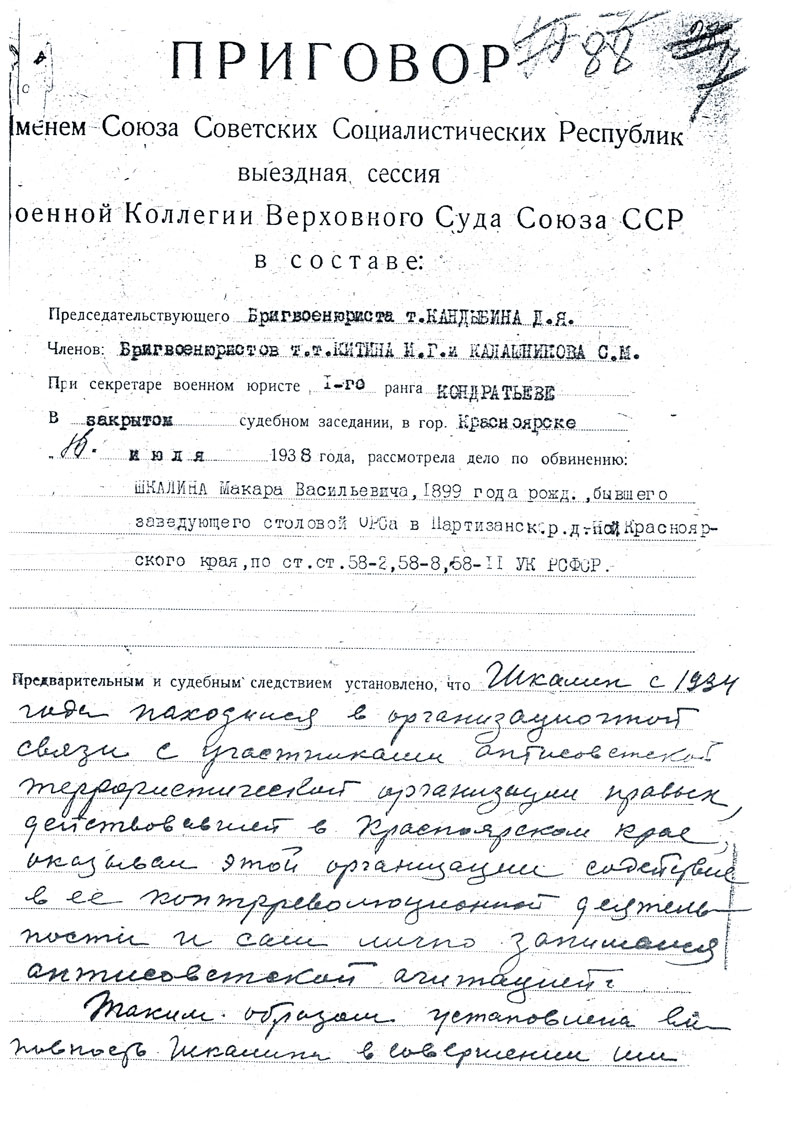 ПРИГОВОР
88
менем Союза Советских Социалистических Республик
выездная сессия
оенной Коллегии Верховного Суда Союза ССР
в составе:
Председательствующего Бригвоенюриста т.КАНДЫБИНА Д.Я.
Членов: Бригвоенюристов т.т.КИТИНА Н.Г.и КАЛАШНИКОВА С.М.
При секретаре военном юристе I-го ранга КОНДРАТЬЕВЕ
В закрытом судебном заседании, в гор. Красноярске
июля 1938 года, рассмотрела дело по обвинению:
ШКАЛИНА Макара Васильевича, 1899 года рожд., бывшего
заведующего столовой ОРСа в Партизанск.р.д-не, Краснояр-
ского края, по ст.ст.58-2,58-8,58-II УК РСФСР.
Предварительным и судебным следствием установлено, что Шкалин с 1934
года находился в организационной
связи с участниками антисоветской
террористической организации правых,
действовавшей в Красноярском крае,
оказывал этой организации содействие
в ее контрреволюционной деятель-
ности и сам лично занимался
антисоветской агитацией.
Таким образом установлена ви-
новность Шкалина в совершении им